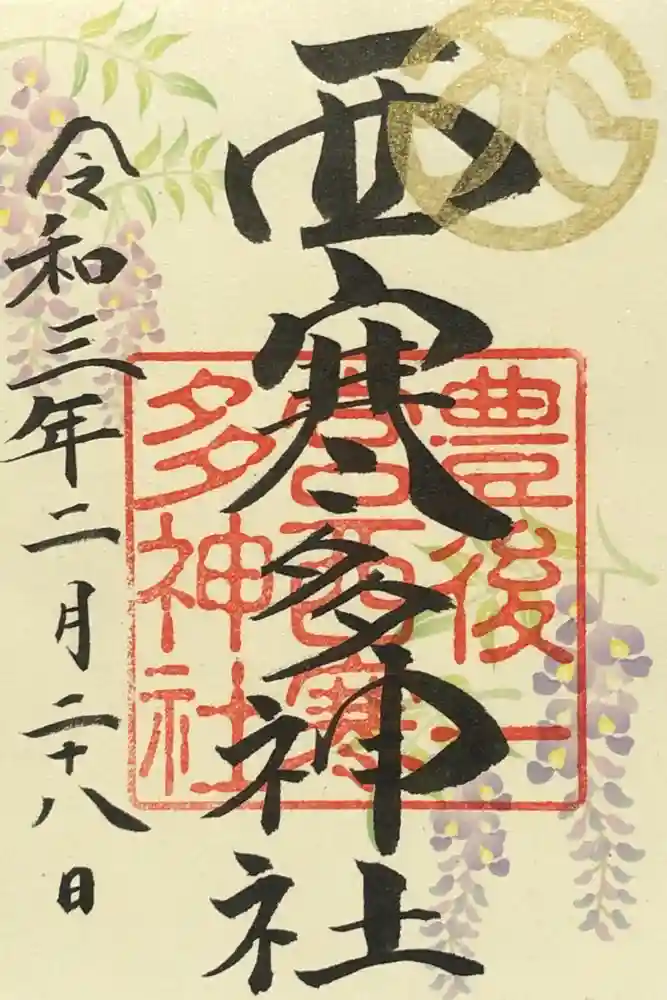 西寒多神社
豊後一
宮西寒
多神社
令和三年二月二十八日